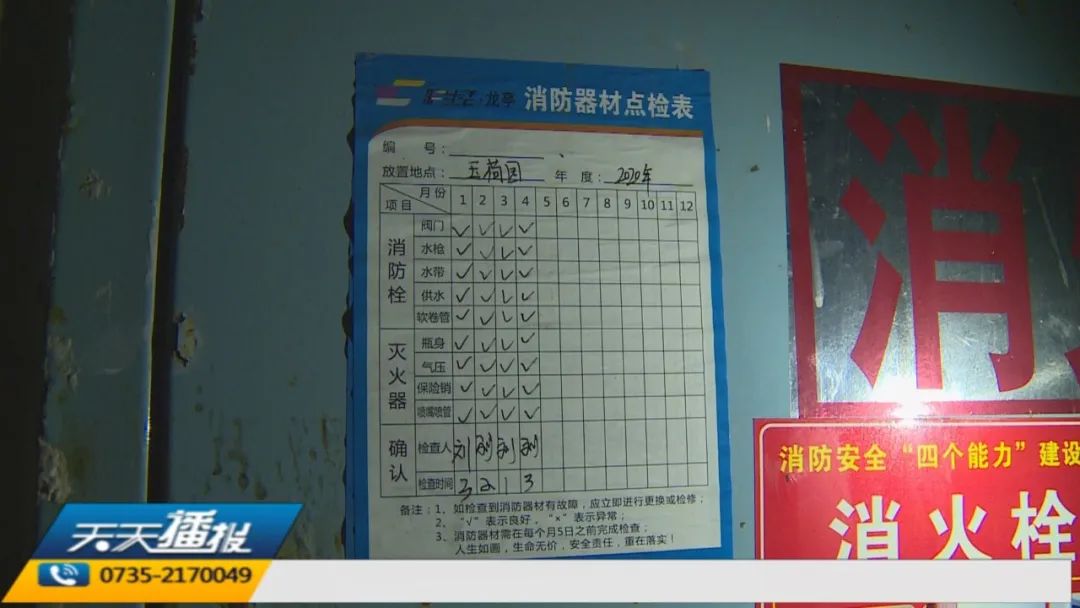 龙亭 消防器材点检表
编 号：
放置地点： 五荷园 年 度： 2020年
月份 项目 1 2 3 4 5 6 7 8 9 10 11 12
消防栓
阀门 ✓ ✓ ✓ ✓
水枪 ✓ ✓ ✓ ✓
水带 ✓ ✓ ✓ ✓
供水 ✓ ✓ ✓ ✓
软卷管 ✓ ✓ ✓ ✓
灭火器
瓶身 ✓ ✓ ✓ ✓
气压 ✓ ✓ ✓ ✓
保险销 ✓ ✓ ✓ ✓
喷嘴喷管 ✓ ✓ ✓ ✓
确认
检查人 刘 刘 刘 刘
检查时间 3 2 1 3
备注：1、如检查到消防器材有故障，应立即进行更换或检修；
2、“√”表示良好，“×”表示异常；
3、消防器材需在每个月5日之前完成检查；
人生如画，生命无价，安全责任，重在落实！
消
消防安全“四个能力”建设
消火栓
天天播报
0735-2170049